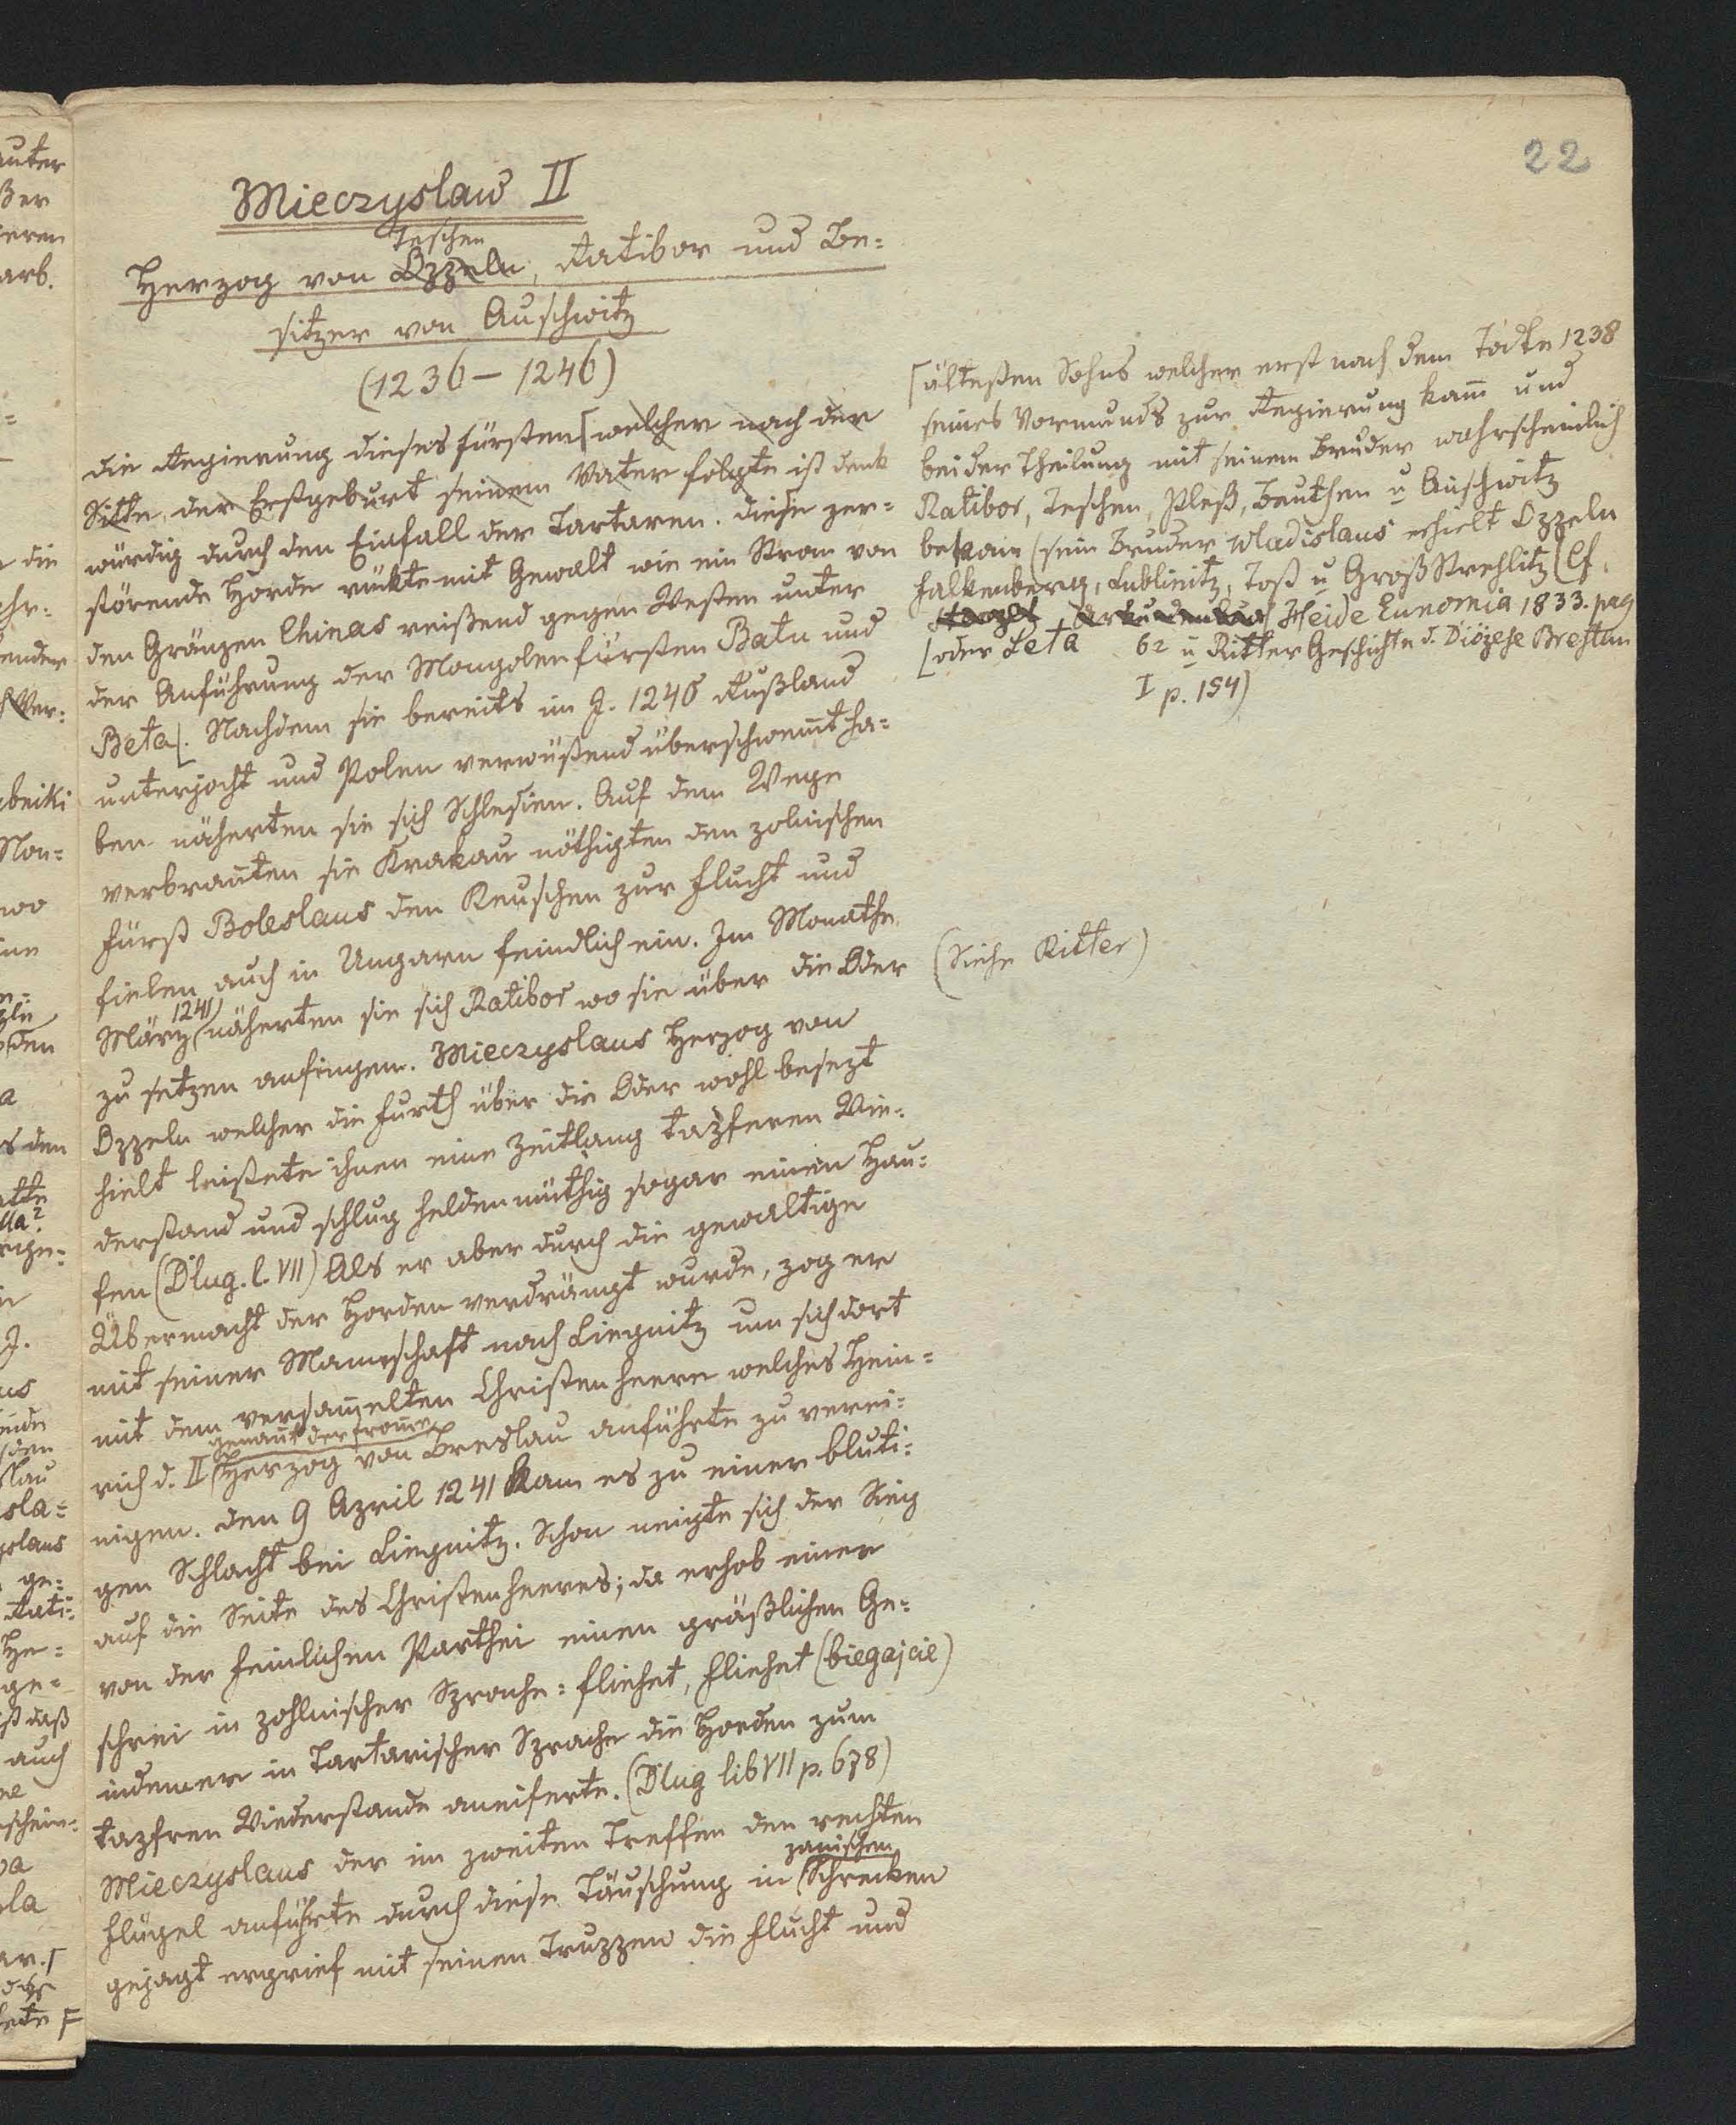 22
Mieczyslaw II
Teschen
Herzog von Oppeln, Ratibor und Be=
sitzer von Auschwitz
(1236 – 1246)
die Regierung dieses Fürsten [welcher nach der
Sitte der Erstgeburt seinem Vater folgte ist denk
würdig durch den Einfall der Tartaren. diese zer=
störende Horde rückte mit Gewalt wie ein Strom von
den Gränzen Chinas reißend gegen Westen unter
der Anführung der Mongolenfürsten Batu und
Beta[. Nachdem sie bereits im J. 1240 Rußland
unterjocht und Polen verwüstend überschwem̄t ha=
ben näherten sie sich Schlesien. Auf dem Wege
verbran̄ten sie Krakau nöthigten den polnischen
Fürst Boleslaus den Keuschen zur Flucht und
fielen auch in Ungarn feindlich ein. Im Monathe
1241
März näherten sie sich Ratibor wo sie über die Oder
zu setzen anfingen. Mieczyslaus Herzog von
Oppeln welcher die Furth über die Oder wohl besezt
hielt leistete ihnen eine Zeitlang tapferen Wie=
derstand und schlug heldenmüthig sogar einen Hau=
fen (Dlug. l. VII) Als er aber durch die gewaltige
Übermacht der Horden verdrängt wurde, zog er
mit seiner Manschaft nach Liegnitz um sich dort
mit dem versam̄elten Christenheere welches Hein=
genan̄t der From̄e
rich d. II Herzog von Breslau anführte zu verei=
nigen. den 9 April 1241 kam es zu einer bluti=
gen Schlacht bei Liegnitz. Schon neigte sich der Sieg
auf die Seite des Christenheeres; da erhob einer
von der feinlichen Parthei einen gräßlichen Ge=
schrei in pohlnischer Sprache: fliehet, fliehet (biegajcie)
indem er in Tartarischer Sprache die Horden zum
tapfren Wiederstande aneiferte. (Dlug lib VII p. 678)
Mieczyslaus der im zweiten Treffen den rechten
panischen
Flügel anführte durch diese Täuschung in Schrecken
gejagt ergrief mit seinen Truppen die Flucht und
[ältesten Sohns welcher erst nach dem Todte 1238
seines Vormunds zur Regierung kam̄ und
bei der Theilung mit seinem Bruder wahrscheinlich
Ratibor, Teschen, Pleß, Beuthen u Auschwitz
bekam (sein Bruder Wladislaus erhielt Oppeln
Falkenberg, Lublinitz, Tost u Groß Strehlitz (Cf.
Heide Eunomia 1833. pag
[oder Leta 62 u Ritter Geschichte d. Diözese Breslau
I p. 154)
(Siehe Ritter)